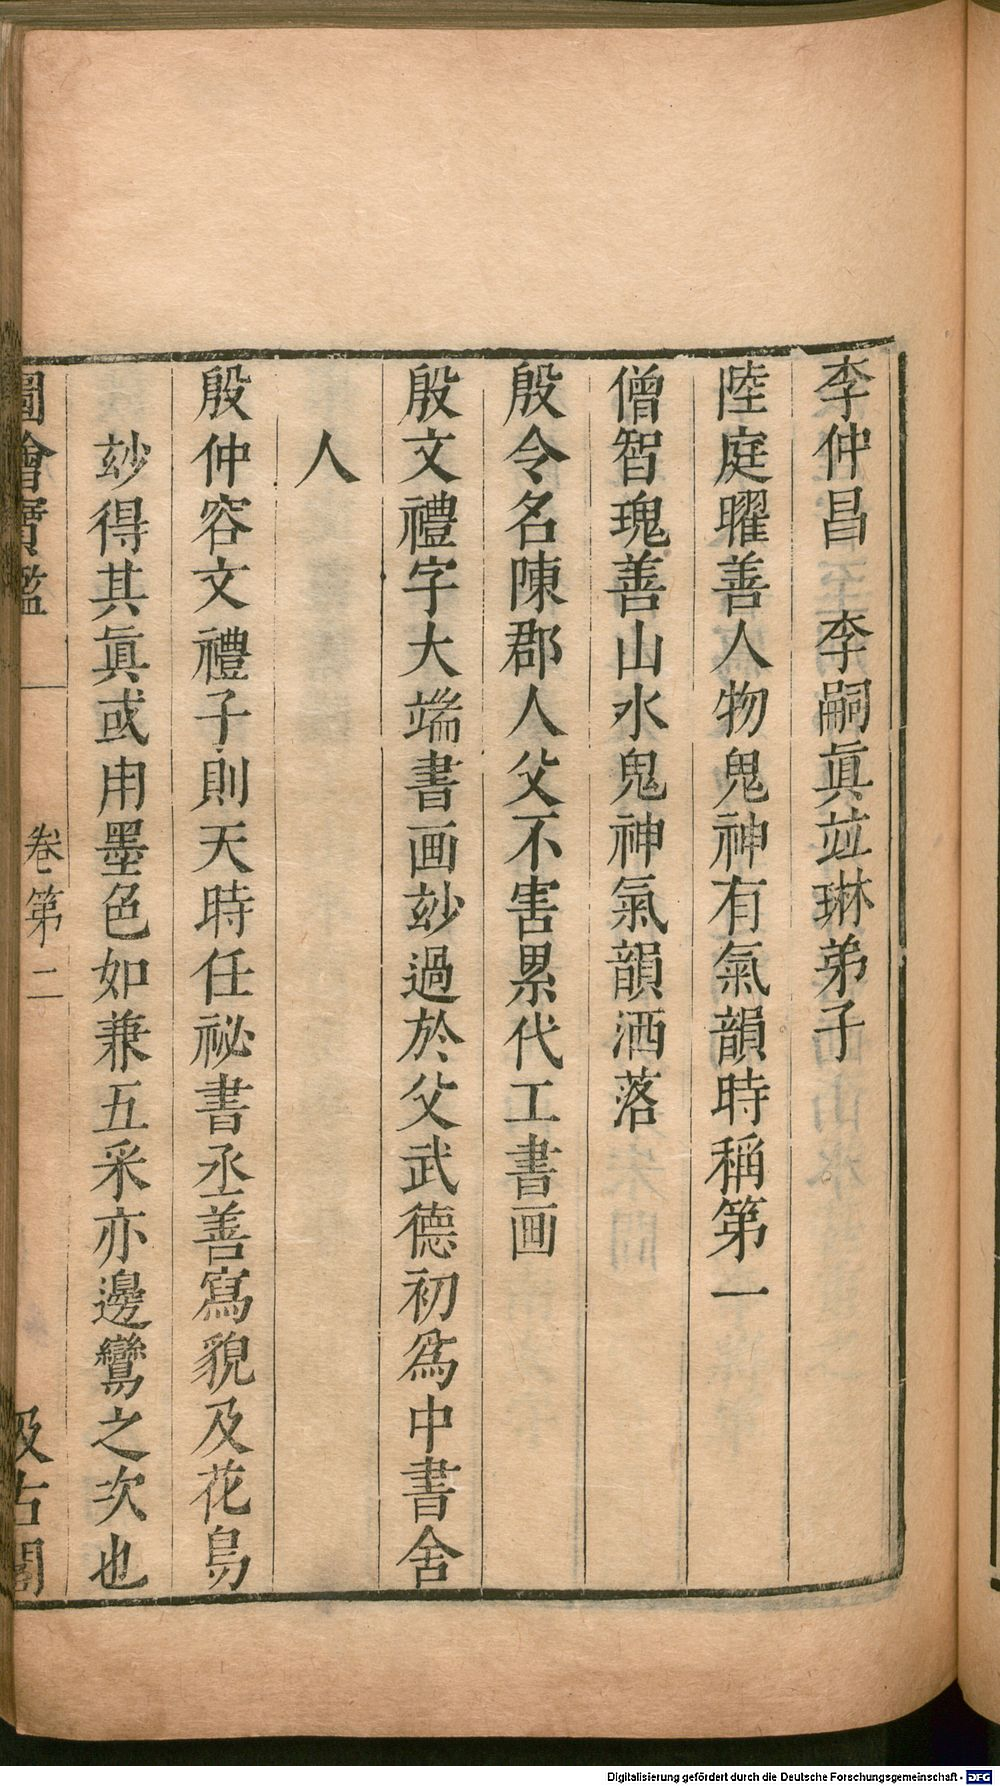 李仲昌　李嗣眞竝琳弟子
陸庭曜善人物鬼神有氣韻時稱第一
僧智瑰善山水鬼神氣韻洒落
殷令名陳郡人父不害累代工書画
殷文禮字大端書画玅過於父武德初爲中書舍
人
殷仲容文禮子則天時任祕書丞善寫貌及花鳥
玅得其眞或用墨色如兼五采亦邊鸞之次也
圖繪寶鑑　卷第二　汲古閣
Digitalisierung gefördert durch die Deutsche Forschungsgemeinschaft - DFG